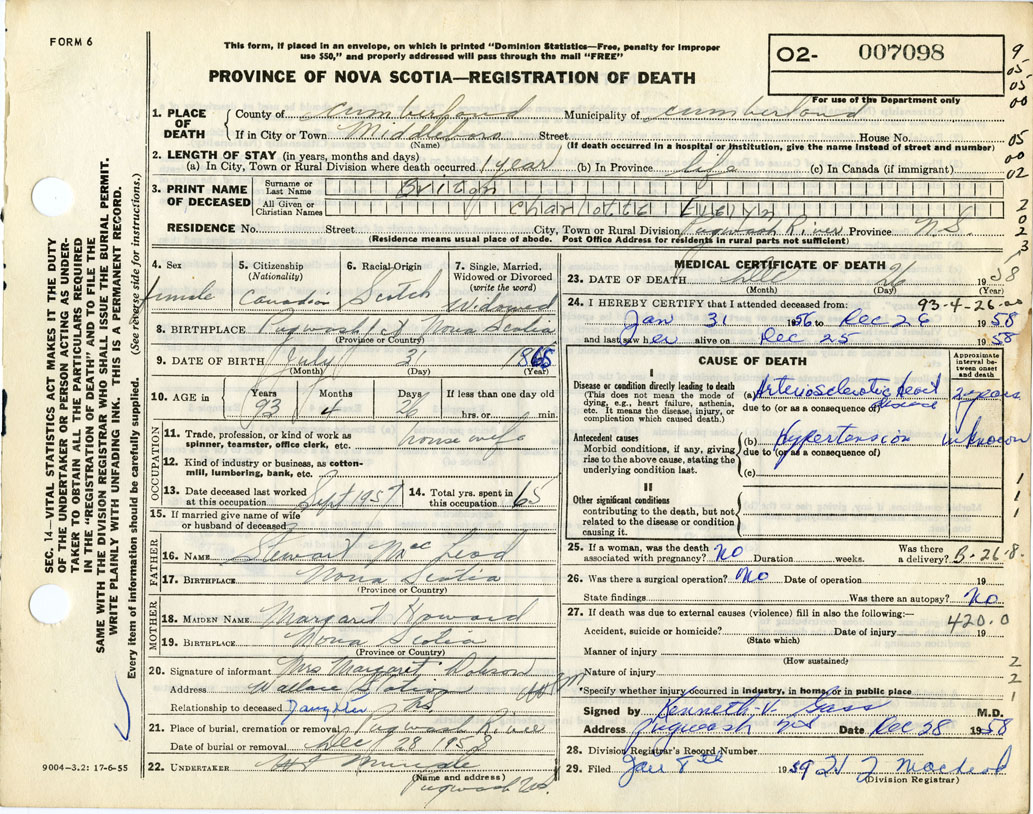 FORM 6
This form, if placed in an envelope, on which is printed "Dominion Statistics—Free, penalty for improper
use $50," and properly addressed will pass through the mail "FREE"
PROVINCE OF NOVA SCOTIA—REGISTRATION OF DEATH
O2- 007098
For use of the Department only
9-
05-
05
00
05
00
02
2
0
2
3
1. PLACE OF DEATH
County of Cumberland Municipality of Cumberland
If in City or Town Middleboro Street House No.
(Name) (If death occurred in a hospital or institution, give the name instead of street and number)
2. LENGTH OF STAY (in years, months and days)
(a) In City, Town or Rural Division where death occurred 1 year (b) In Province life (c) In Canada (if immigrant)
3. PRINT NAME OF DECEASED
Surname or Last Name
All Given or Christian Names Charlotte
RESIDENCE No. Street City, Town or Rural Division Pugwash River Province N.S.
(Residence means usual place of abode. Post Office Address for residents in rural parts not sufficient)
4. Sex
female
5. Citizenship
(Nationality)
Canadian
6. Racial Origin
Scotch
7. Single, Married, Widowed or Divorced
(write the word)
Widowed
8. BIRTHPLACE Pugwash Nova Scotia
(Province or Country)
9. DATE OF BIRTH July 31 1865
(Month) (Day) (Year)
10. AGE in Years Months Days If less than one day
93 4 26 hrs. or min.
OCCUPATION
11. Trade, profession, or kind of work as
spinner, teamster, office clerk, etc. housewife
12. Kind of industry or business, as cotton-
mill, lumbering, bank, etc.
13. Date deceased last worked
at this occupation Sept 1957
14. Total yrs. spent in
this occupation 65
15. If married give name of wife
or husband of deceased
FATHER
16. NAME Stewart MacLeod
17. BIRTHPLACE Nova Scotia
(Province or Country)
MOTHER
18. MAIDEN NAME Margaret Howard
19. BIRTHPLACE Nova Scotia
(Province or Country)
20. Signature of informant Mrs Margaret Dobson
Address Wallace Station
Relationship to deceased Daughter N.S.
21. Place of burial, cremation or removal Pugwash River
Date of burial or removal Dec 28 1958
22. UNDERTAKER
(Name and address)
Pugwash N.S.
MEDICAL CERTIFICATE OF DEATH
23. DATE OF DEATH Dec 26 1958
(Month) (Day) (Year)
93-4-26-00
24. I HEREBY CERTIFY that I attended deceased from:
Jan 31 1956 to Dec 26 1958
and last saw her alive on Dec 25 1958
CAUSE OF DEATH
Approximate interval between onset and death
I
Disease or condition directly leading to death
(This does not mean the mode of
dying, e.g., heart failure, asthenia,
etc. It means the disease, injury, or
complication which caused death.)
(a) Arteriosclerotic heart disease 2 years
due to (or as a consequence of)
Antecedent causes
Morbid conditions, if any, giving
rise to the above cause, stating the
underlying condition last.
(b) Hypertension unknown
due to (or as a consequence of)
(c)
II
Other significant conditions
contributing to the death, but not
related to the disease or condition
causing it.
1
1
1
25. If a woman, was the death
associated with pregnancy? No Duration weeks. Was there
a delivery? B-26-8.
26. Was there a surgical operation? No Date of operation 19
State findings Was there an autopsy? No
27. If death was due to external causes (violence) fill in also the following:—
420.0
Accident, suicide or homicide? Date of injury 19
(State which)
Manner of injury
(How sustained)
Nature of injury
2
2
1
*Specify whether injury occurred in industry, in home, or in public place
Signed by Kenneth V. Gass M.D.
Address Pugwash NS Date Dec 28 1958
28. Division Registrar's Record Number
29. Filed Jan 8th 1959
(Division Registrar)
SEC. 14—VITAL STATISTICS ACT MAKES IT THE DUTY
OF THE UNDERTAKER OR PERSON ACTING AS UNDER-
TAKER TO OBTAIN ALL THE PARTICULARS REQUIRED
IN THE "REGISTRATION OF DEATH" AND TO FILE THE
SAME WITH THE DIVISION REGISTRAR WHO SHALL ISSUE THE BURIAL PERMIT.
WRITE PLAINLY WITH UNFADING INK. THIS IS A PERMANENT RECORD.
Every item of information should be carefully supplied. (See reverse side for instructions.)
9004-3.2: 17-6-55